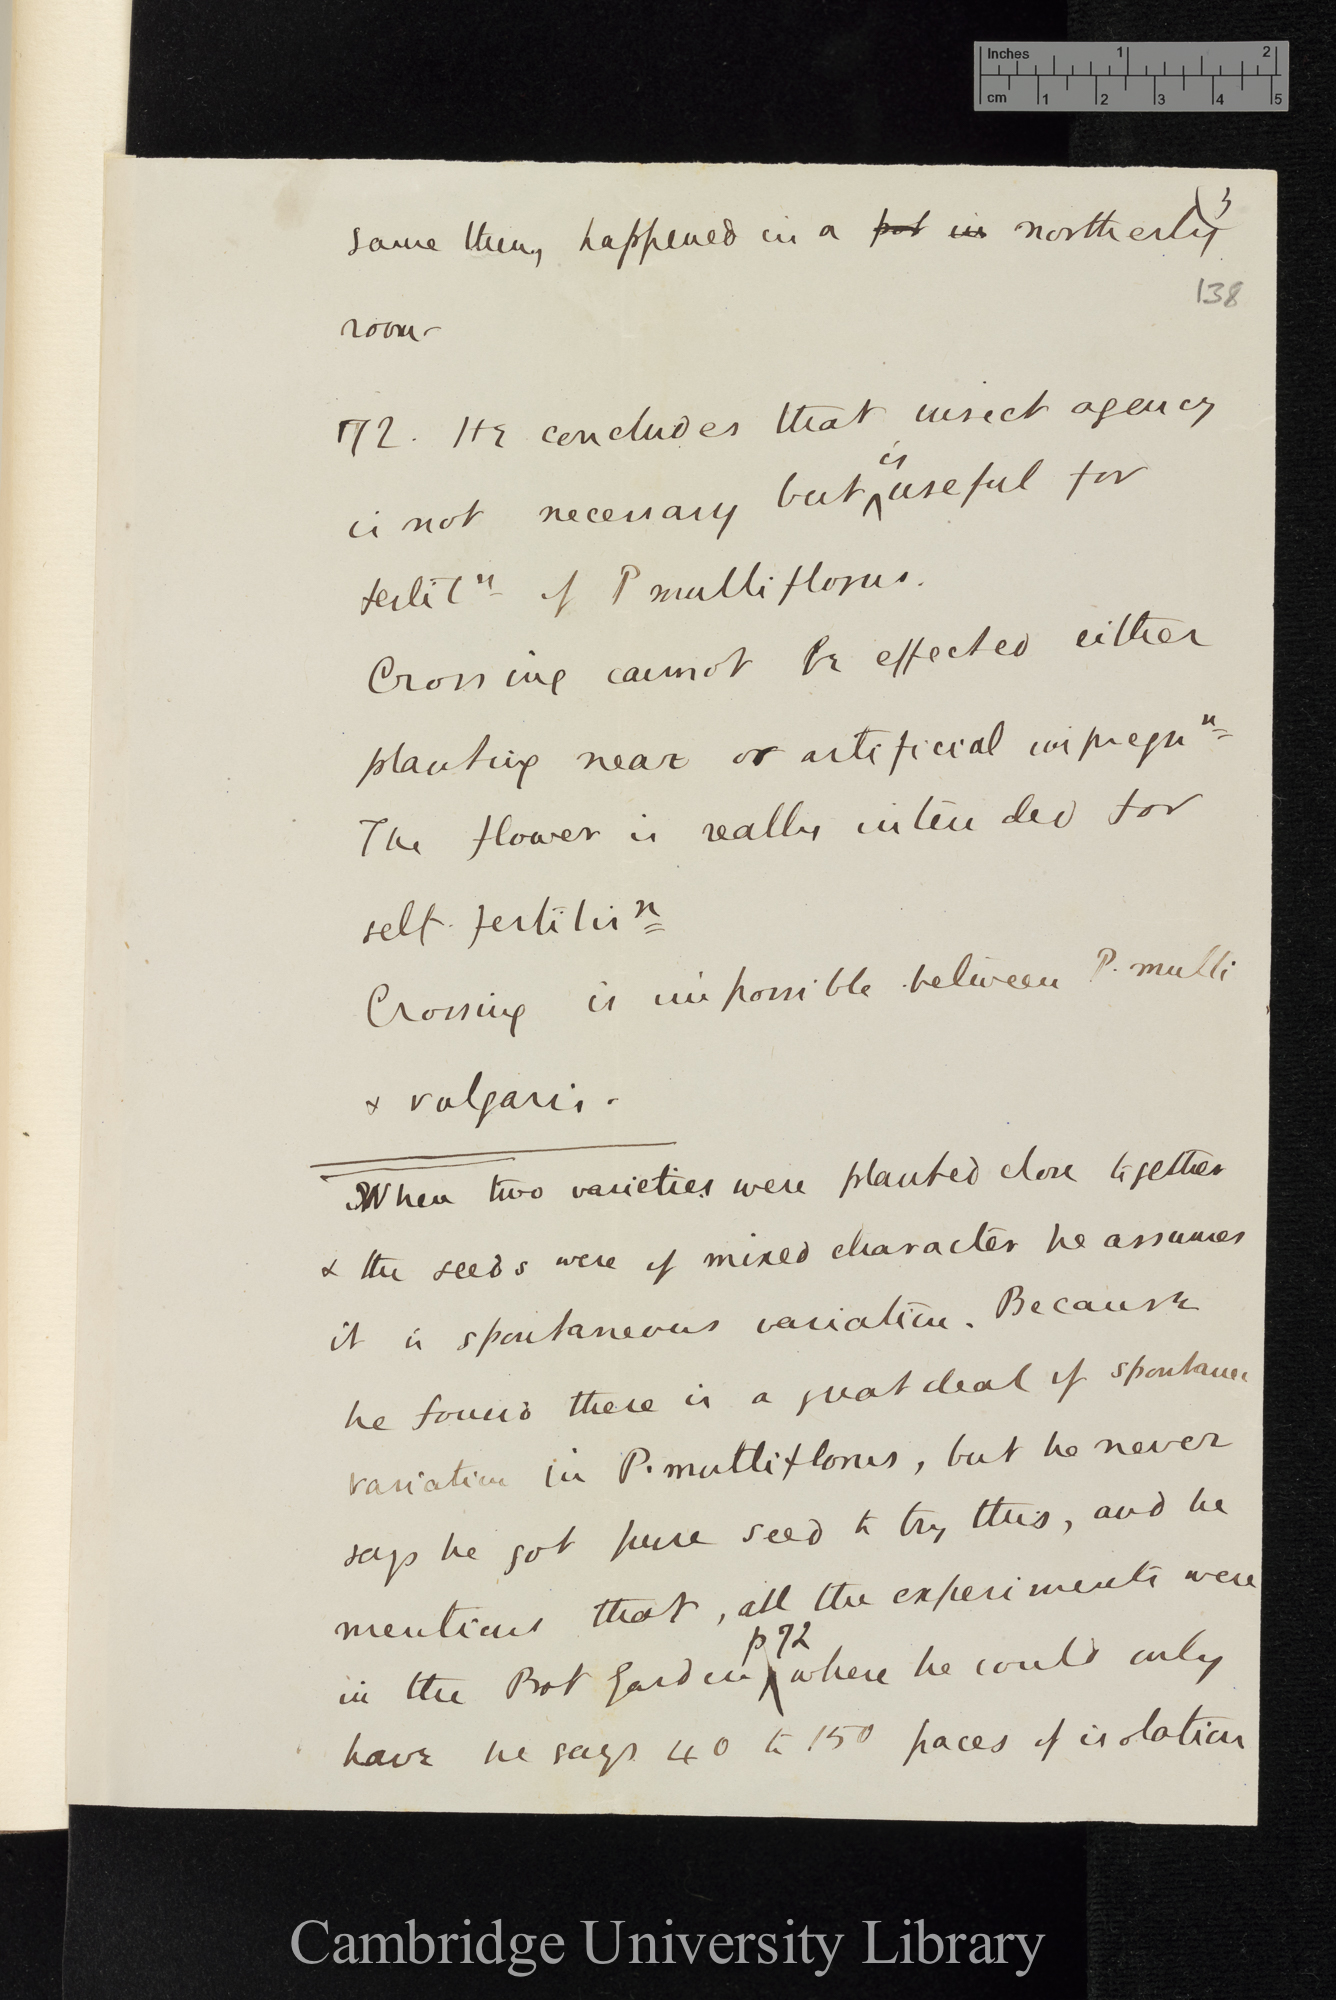 Inches 1 2
cm 1 2 3 4 5
3
same thing happened in a pot in northerly
138
room.
72. He concludes that insect agency
is not necessary but is useful for
fertilⁿ of P multiflorus.
Crossing cannot be effected either
planting near or artificial impregⁿ
The flower is really intended for
self. fertilisⁿ
Crossing is impossible between P. multi
& vulgaris.
When two varieties were planted close together
& the seeds were of mixed character he assumes
it is spontaneous variation. Because
he found there is a great deal of spontaneo
variation in P. multiflorus, but he never
says he got pure seed to try this, and he
mentions that, all the experiments were
in the Bot Garden p 72 where he could only
have he says 40 to 150 paces of isolation
Cambridge University Library